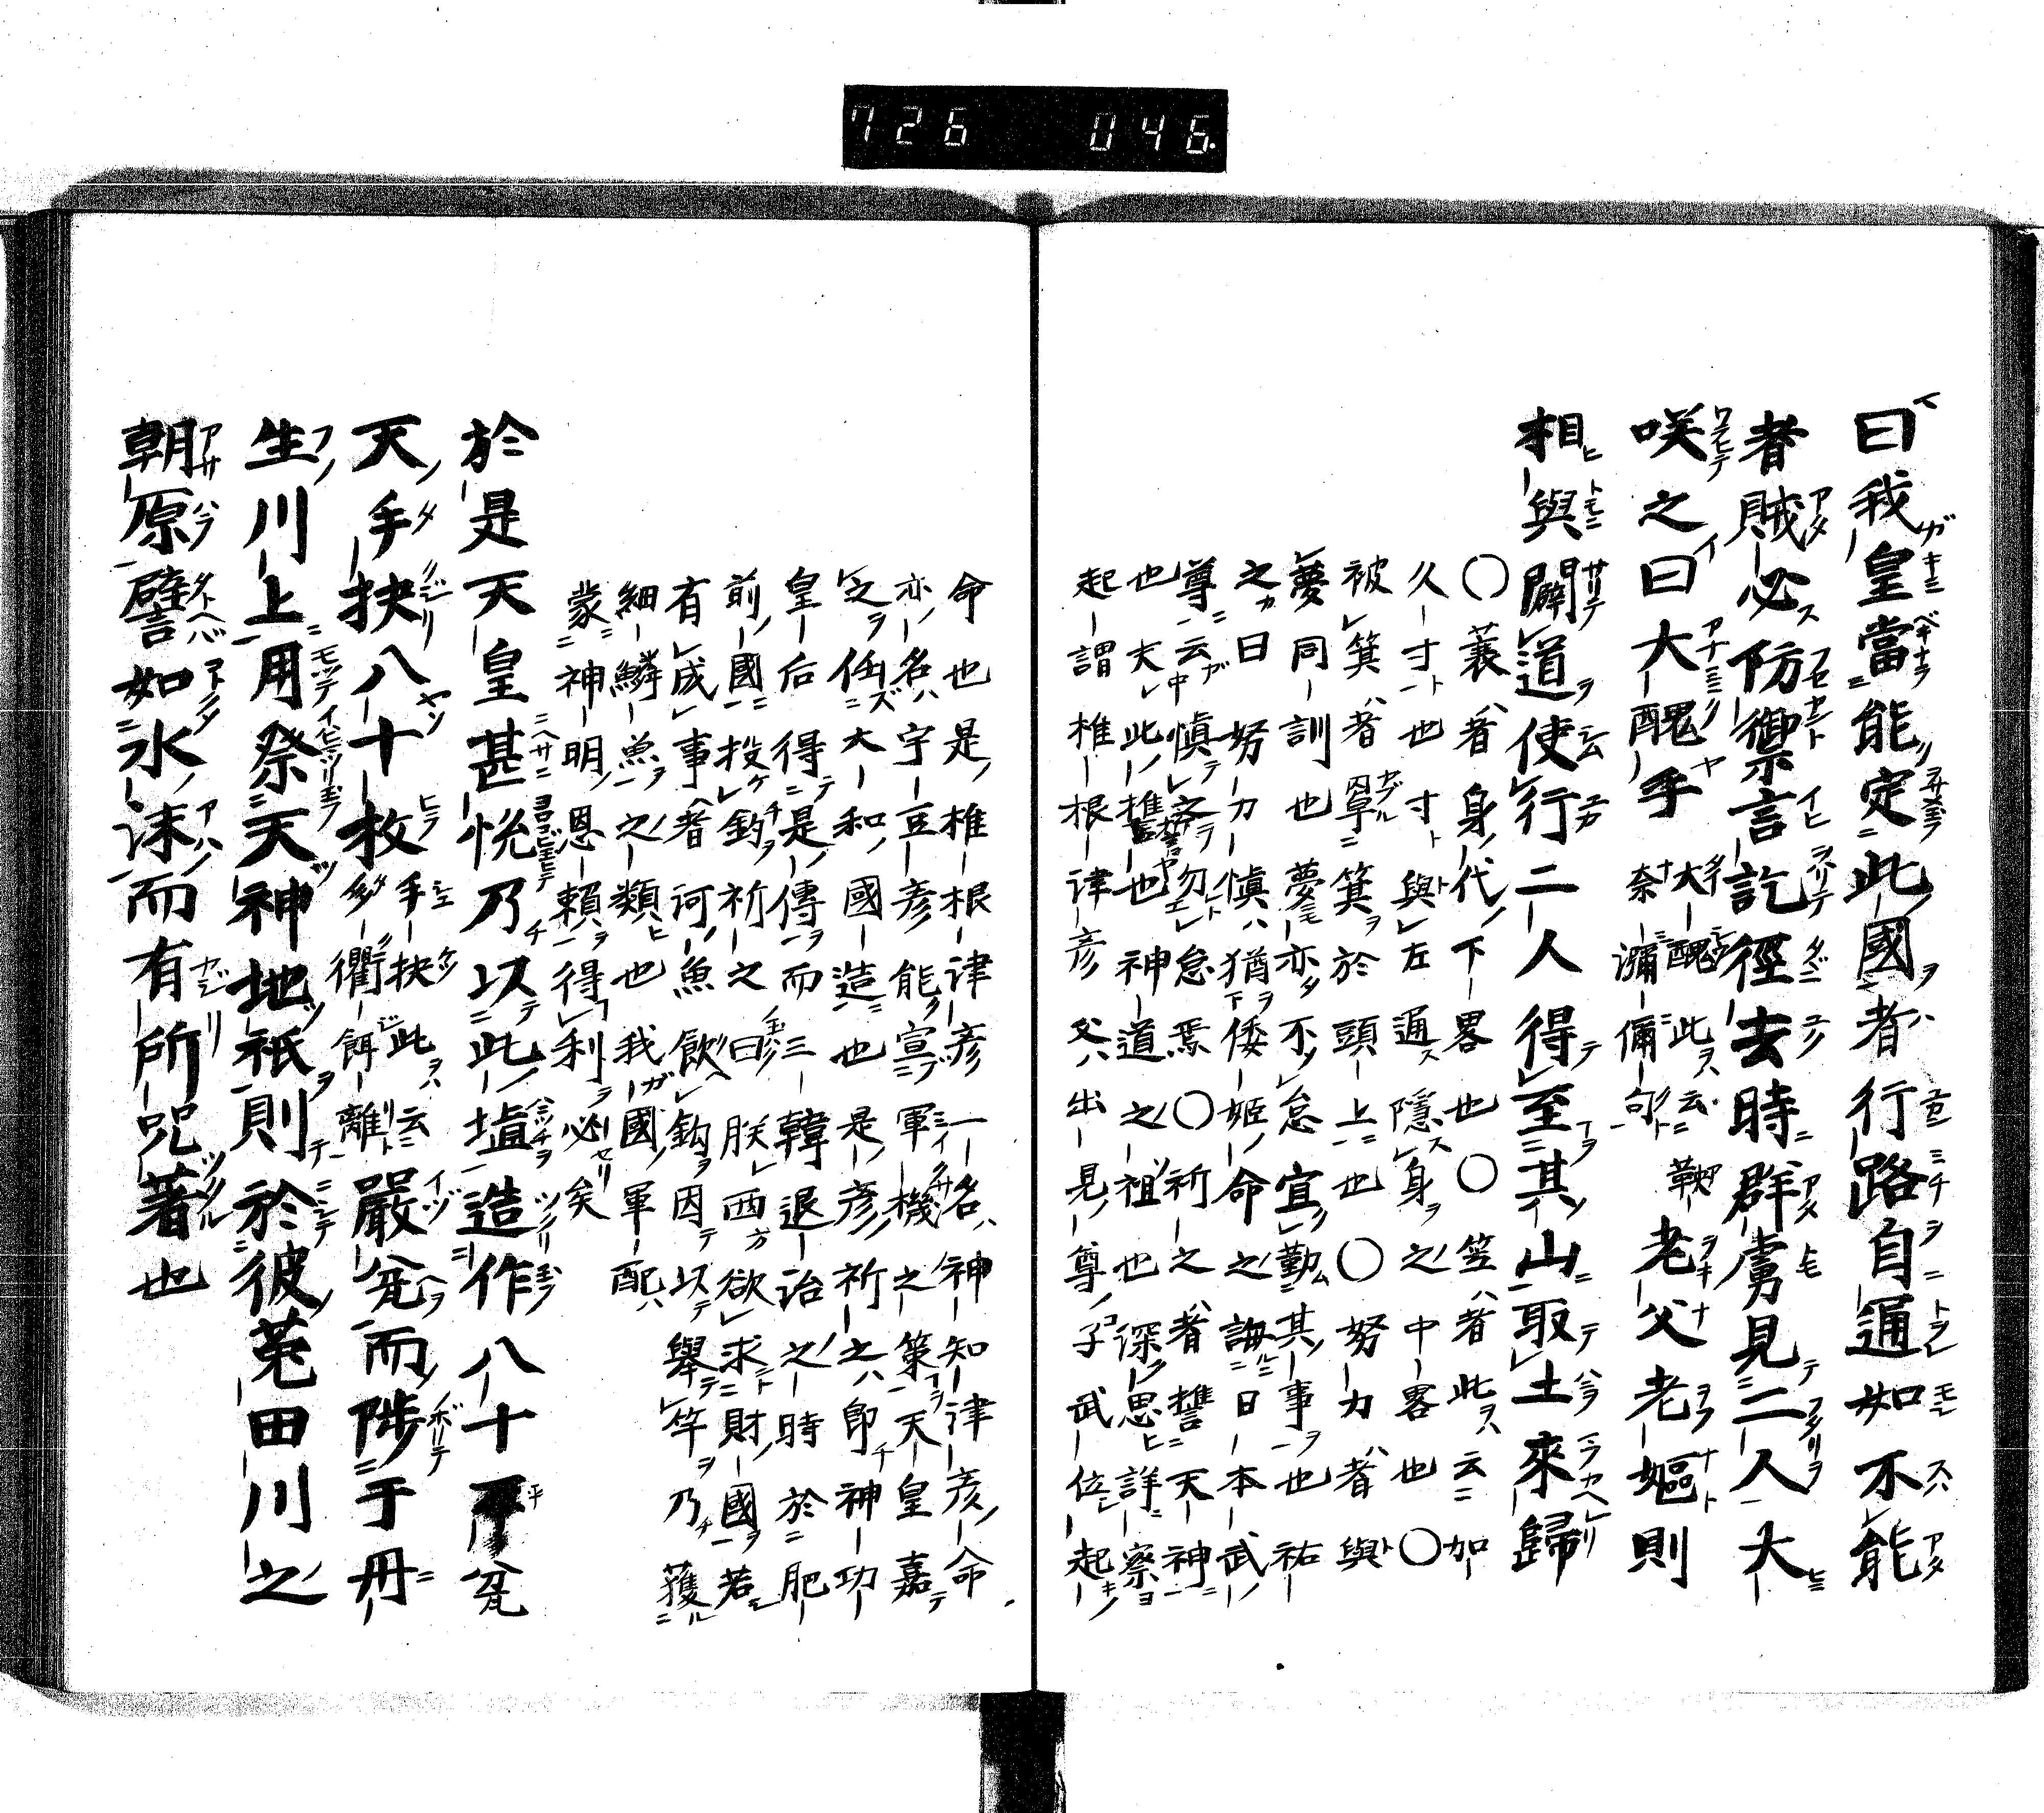 726 046.
曰我皇當能定此國者行路自通如不能
者賊必防禦言訖徑去時群虜見二人大
咲之曰大醜乎 大醜此云鞅奈瀰儞句 老父老嫗則
相與闢道使行二人得至其山取土來歸
〇蓑者身代下畧也〇笠者此云加
久寸也寸與左通隱身之中畧也〇
被箕者覃箕於頭上也〇努力者與
夢同訓也夢亦不怠宜勤其事也祐
之曰努力愼猶倭姬命之誨日本武
尊云愼之勿怠焉〇祈之者誓天神
也夫此誓也神道之祖也深思詳察
起謂椎根津彦父出見尊子武位起
命也是椎根津彦一名神知津彦命
亦名宇豆彦能宣軍機之策天皇嘉
之任大和國造也是彦祈之即神功
皇后得是傳而三韓退治之時於肥
前國投鈎祈之曰朕西欲求財國若
有成事者河魚飲鈎因以擧竿乃獲
細鱗魚之類也我國軍配
蒙神明恩賴得利必矣
於是天皇甚悅乃以此埴造作八十平瓮
天手抉八十枚 手抉此云多衢餌離 嚴瓮而陟于丹
生川上用祭天神地祇則於彼菟田川之
朝原譬如水沫而有所咒著也